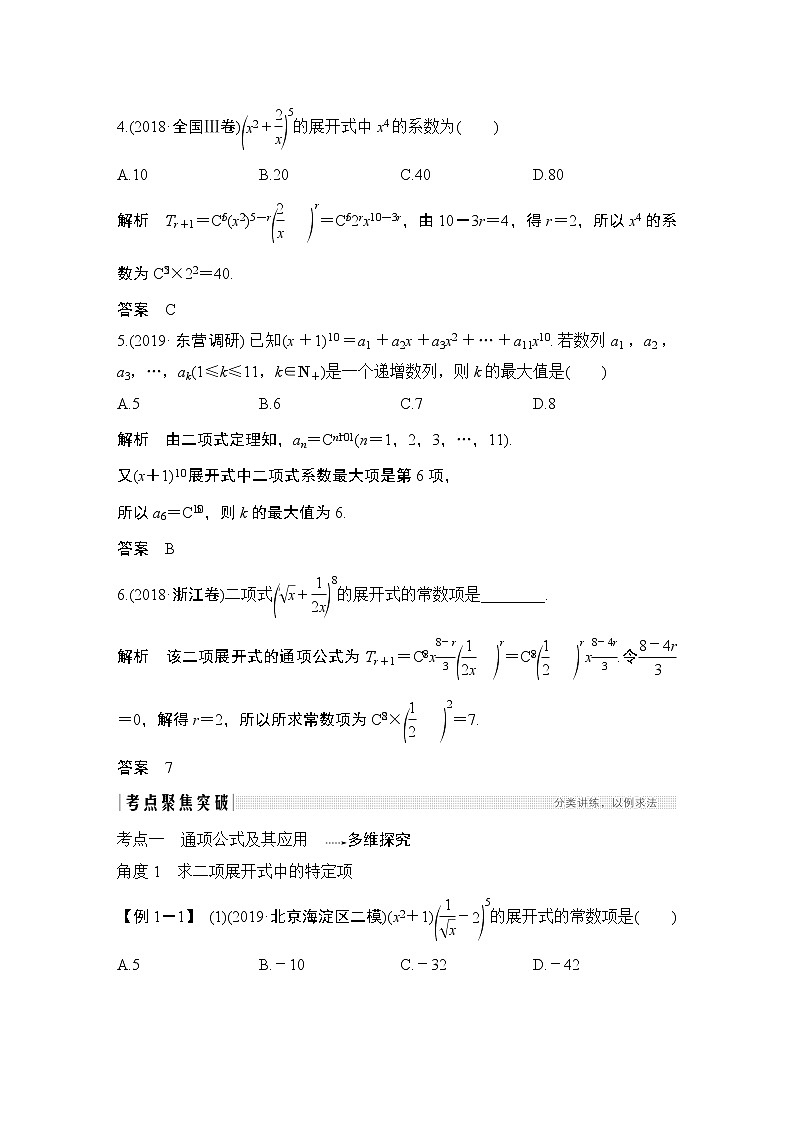 4.(2018·全国Ⅲ卷)(x²+2/x)⁵的展开式中 x⁴的系数为(　　)
A.10　B.20　C.40　D.80
解析　Tᵣ₊₁=C(x²)⁵⁻ʳ(2/x)ʳ=C2ʳx¹⁰⁻³ʳ，由 10-3r=4，得 r=2，所以 x⁴ 的系
数为 C×2²=40.
答案　C
5.(2019·东营调研)已知(x+1)¹⁰=a₁+a₂x+a₃x²+…+a₁₁x¹⁰.若数列 a₁，a₂，
a₃，…，aₖ(1≤k≤11，k∈N₊)是一个递增数列，则 k 的最大值是(　　)
A.5　B.6　C.7　D.8
解析　由二项式定理知，aₙ=C(n=1，2，3，…，11).
又(x+1)¹⁰展开式中二项式系数最大项是第 6 项，
所以 a₆=C，则 k 的最大值为 6.
答案　B
6.(2018·浙江卷)二项式(√x+1/2x)⁸的展开式的常数项是________.
解析　该二项展开式的通项公式为 Tᵣ₊₁=Cx^(8-r/3)(1/2x)ʳ=C(1/2)ʳx^(8-4r/3).令8-4r/3
=0，解得 r=2，所以所求常数项为 C×(1/2)²=7.
答案　7
考点聚焦突破　分类讲练，以例求法
考点一　通项公式及其应用　多维探究
角度 1　求二项展开式中的特定项
【例 1-1】 (1)(2019·北京海淀区二模)(x²+1)(1/√x-2)⁵的展开式的常数项是(　　)
A.5　B.-10　C.-32　D.-42